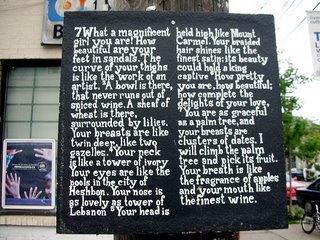 7What a magnificent
girl you are! How
beautiful are your
feet in sandals. The
curve of your thighs
is like the work of an
artist. ²A bowl is there,
that never runs out of
spiced wine. A sheaf of
wheat is there,
surrounded by lilies.
Your breasts are like
twin deer, like two
gazelles. ⁴Your neck
is like a tower of ivory
Your eyes are like the
pools in the city of
Heshbon. Your nose is
as lovely as tower of
Lebanon ⁵Your head is
held high like Mount
Carmel. Your braided
hair shines like the
finest satin: its beauty
could hold a king
captive ⁶How pretty
you are, how beautiful;
how complete the
delights of your love.
⁷You are as graceful
as a palm tree, and
your breasts are
clusters of dates. I
will climb the palm
tree and pick its fruit.
Your breath is like
the fragrance of apples
and your mouth like
the finest wine.